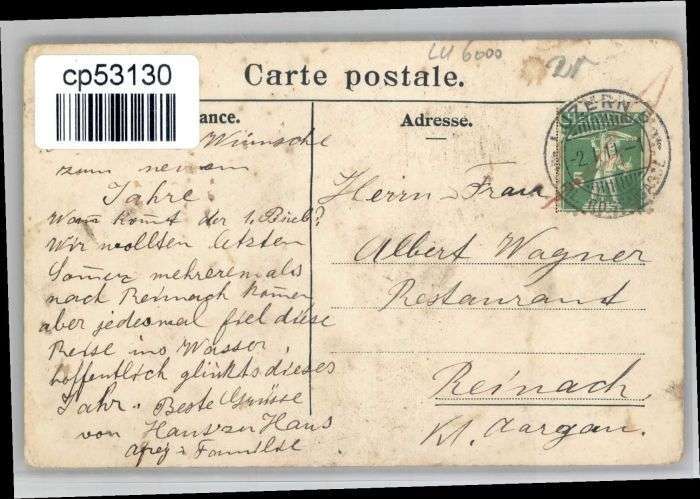 cp53130
LU 6000
Carte postale.
ance.
Adresse.
LUZERN
2.I.11.
5
Wünsche
zum neuen
Jahre.
Wann kommt der 1. Bueb?
Wir wollten letzten
Somer mehreremals
nach Reinach komen
aber jedesmal fiel diese
Reise ins Wasser,
hoffentlich glinkts dieses
Jahr. Beste Grüsse
von Hans zu Haus
Familie
Herrn & Frau
Albert Wagner
Restaurant
Reinach
Kt. Aargau.